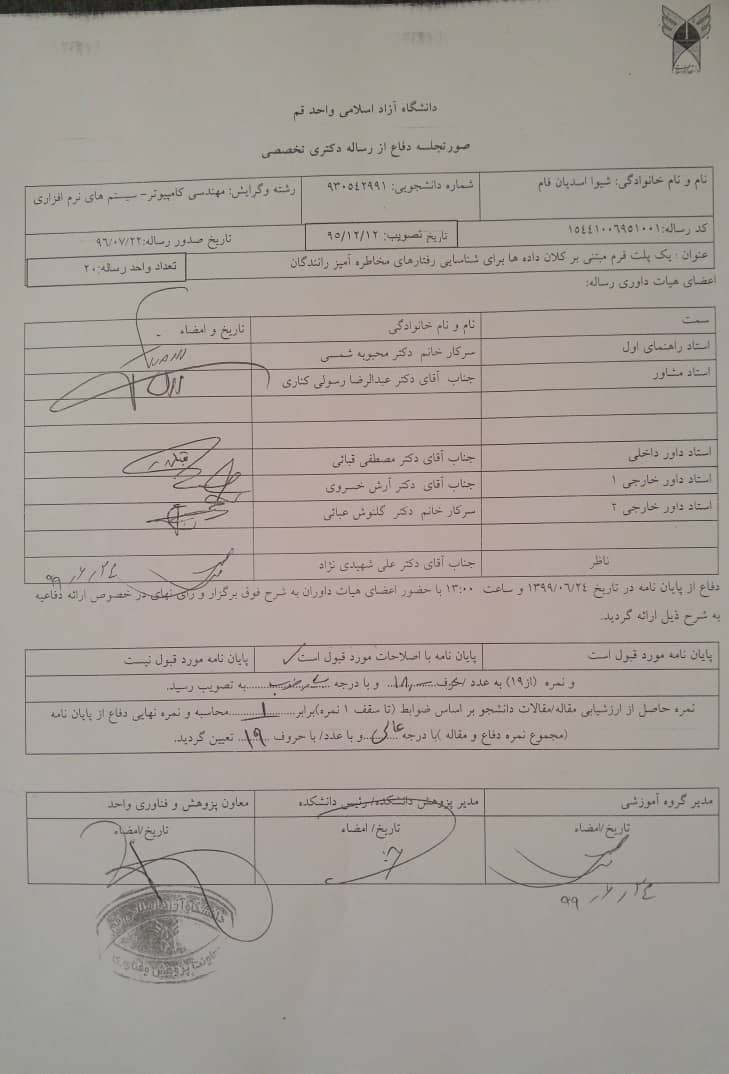 دانشگاه آزاد اسلامی واحد قم
صورتجلسه دفاع از رساله دکتری تخصصی
نام و نام خانوادگی: شیوا اسدیان فام شماره دانشجویی: ۹۳۰۵۴۲۹۹۱ رشته وگرایش: مهندسی کامپیوتر- سیستم های نرم افزاری
کد رساله:۱۵۴۴۱۰۰۶۹۵۱۰۰۱ تاریخ تصویب: ۹۵/۱۲/۱۲ تاریخ صدور رساله:۹۶/۰۷/۲۲
عنوان : یک پلت فرم مبتنی بر کلان داده ها برای شناسایی رفتارهای مخاطره آمیز رانندگان تعداد واحد رساله:۲۰
اعضای هیات داوری رساله:
سمت نام و نام خانوادگی تاریخ و امضاء
استاد راهنمای اول سرکار خانم دکتر محبوبه شمسی
استاد مشاور جناب آقای دکتر عبدالرضا رسولی کناری
استاد داور داخلی جناب آقای دکتر مصطفی قبائی
استاد داور خارجی ۱ جناب آقای دکتر آرش خسروی
استاد داور خارجی ۲ سرکار خانم دکتر گلنوش عبائی
ناظر جناب آقای دکتر علی شهیدی نژاد ۹۹/۶/۲۴
دفاع از پایان نامه در تاریخ ۱۳۹۹/۰۶/۲۴ و ساعت ۱۳:۰۰ با حضور اعضای هیات داوران به شرح فوق برگزار و رای نهای در خصوص ارائه دفاعیه
به شرح ذیل ارائه گردید.
پایان نامه مورد قبول است پایان نامه با اصلاحات مورد قبول است ✓ پایان نامه مورد قبول نیست
و نمره (از۱۹) به عدد /حروف .......... و با درجه .......... به تصویب رسید.
نمره حاصل از ارزشیابی مقاله/مقالات دانشجو بر اساس ضوابط (تا سقف ۱ نمره)برابر.......۱.......محاسبه و نمره نهایی دفاع از پایان نامه
(مجموع نمره دفاع و مقاله )با درجه عالی و با عدد/ با حروف ۱۹ تعیین گردید.
مدیر گروه آموزشی مدیر پژوهش دانشکده/ رئیس دانشکده معاون پژوهش و فناوری واحد
تاریخ/امضاء تاریخ/ امضاء تاریخ/امضاء
۹۹/۶/۲۴